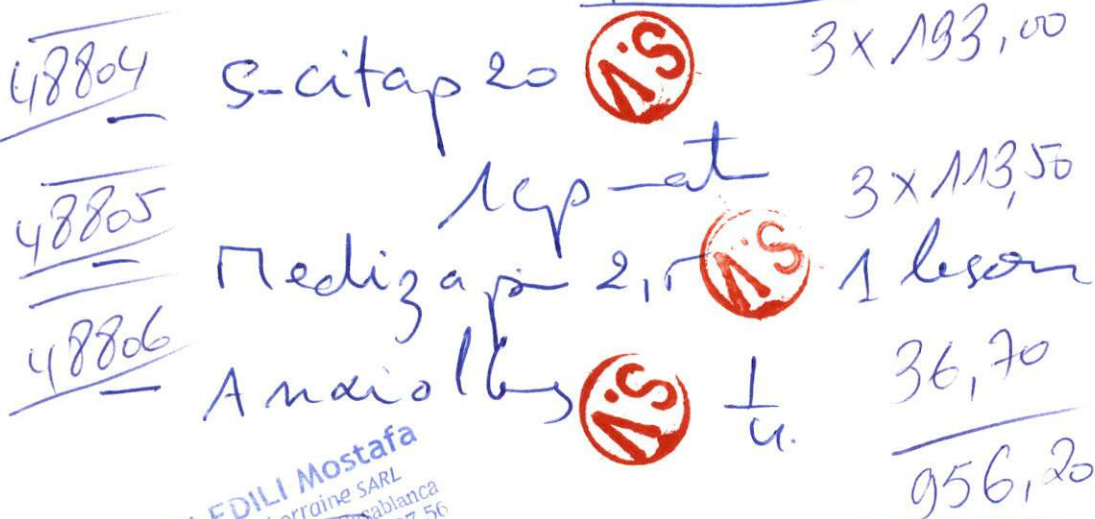 48804 S-citap 20 A.S 3 x 193,00
1cp-at 3 x 113,50
48805 Medizapin 2,5 A.S 1 le soir
48806 Anxiol A.S 1/4. 36,70
956,20
EDILI Mostafa
orraine SARL
sablanca
27 56